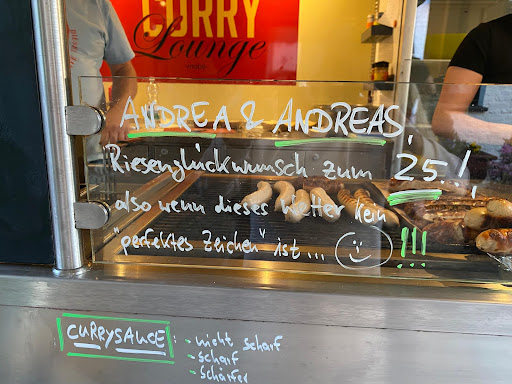 CURRY
Lounge
ANDREA & ANDREAS,
Riesenglückwunsch zum 25!,
also wenn dieses Wetter kein
"perfektes Zeichen" ist... !!!
CURRYSAUCE: - nicht scharf
- scharf
- schärfer